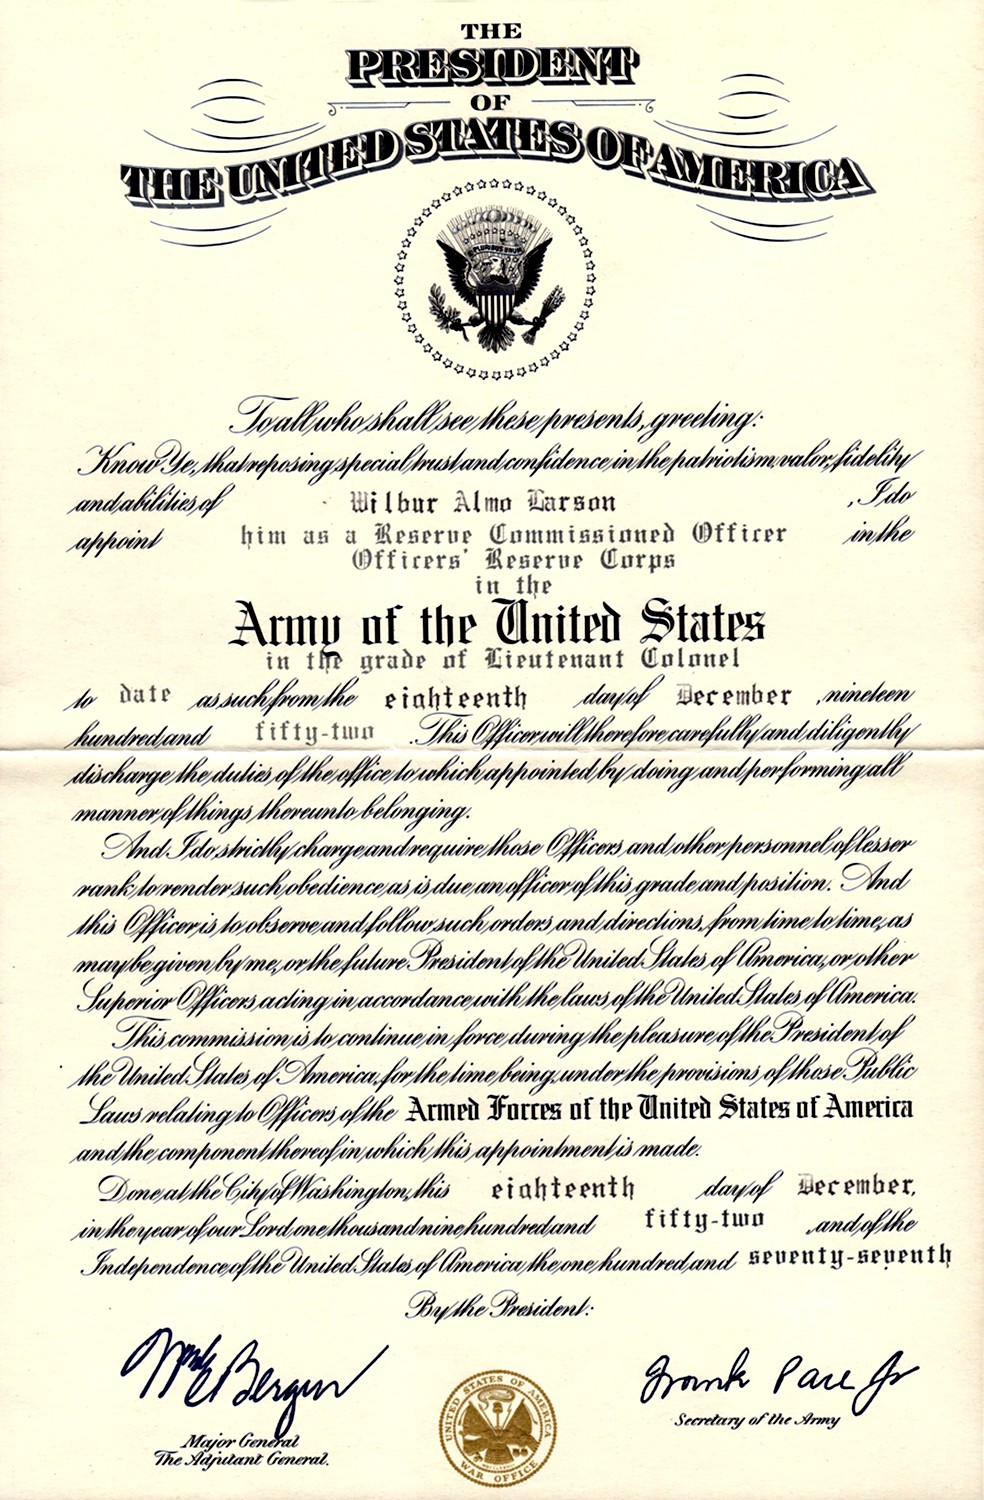 THE
PRESIDENT
OF
THE UNITED STATES OF AMERICA
E PLURIBUS UNUM
To all who shall see these presents, greeting:
Know Ye, that reposing special trust and confidence in the patriotism, valor, fidelity
and abilities of Wilbur Almo Larson , I do
appoint him as a Reserve Commissioned Officer in the
Officers' Reserve Corps
in the
Army of the United States
in the grade of Lieutenant Colonel
to date as such from the eighteenth day of December , nineteen
hundred and fifty-two . This Officer will therefore carefully and diligently
discharge the duties of the office to which appointed by doing and performing all
manner of things thereunto belonging.
And I do strictly charge and require those Officers and other personnel of lesser
rank to render such obedience as is due an officer of this grade and position. And
this Officer is to observe and follow such orders and directions, from time to time, as
may be given by me, or the future President of the United States of America, or other
Superior Officers acting in accordance with the laws of the United States of America.
This commission is to continue in force during the pleasure of the President of
the United States of America, for the time being, under the provisions of those Public
Laws relating to Officers of the Armed Forces of the United States of America
and the component thereof in which this appointment is made.
Done at the City of Washington, this eighteenth day of December,
in the year of our Lord one thousand nine hundred and fifty-two , and of the
Independence of the United States of America the one hundred and seventy-seventh
By the President:
Wm E Bergin
Frank Pace Jr
Major General
The Adjutant General.
Secretary of the Army
UNITED STATES OF AMERICA
WAR OFFICE